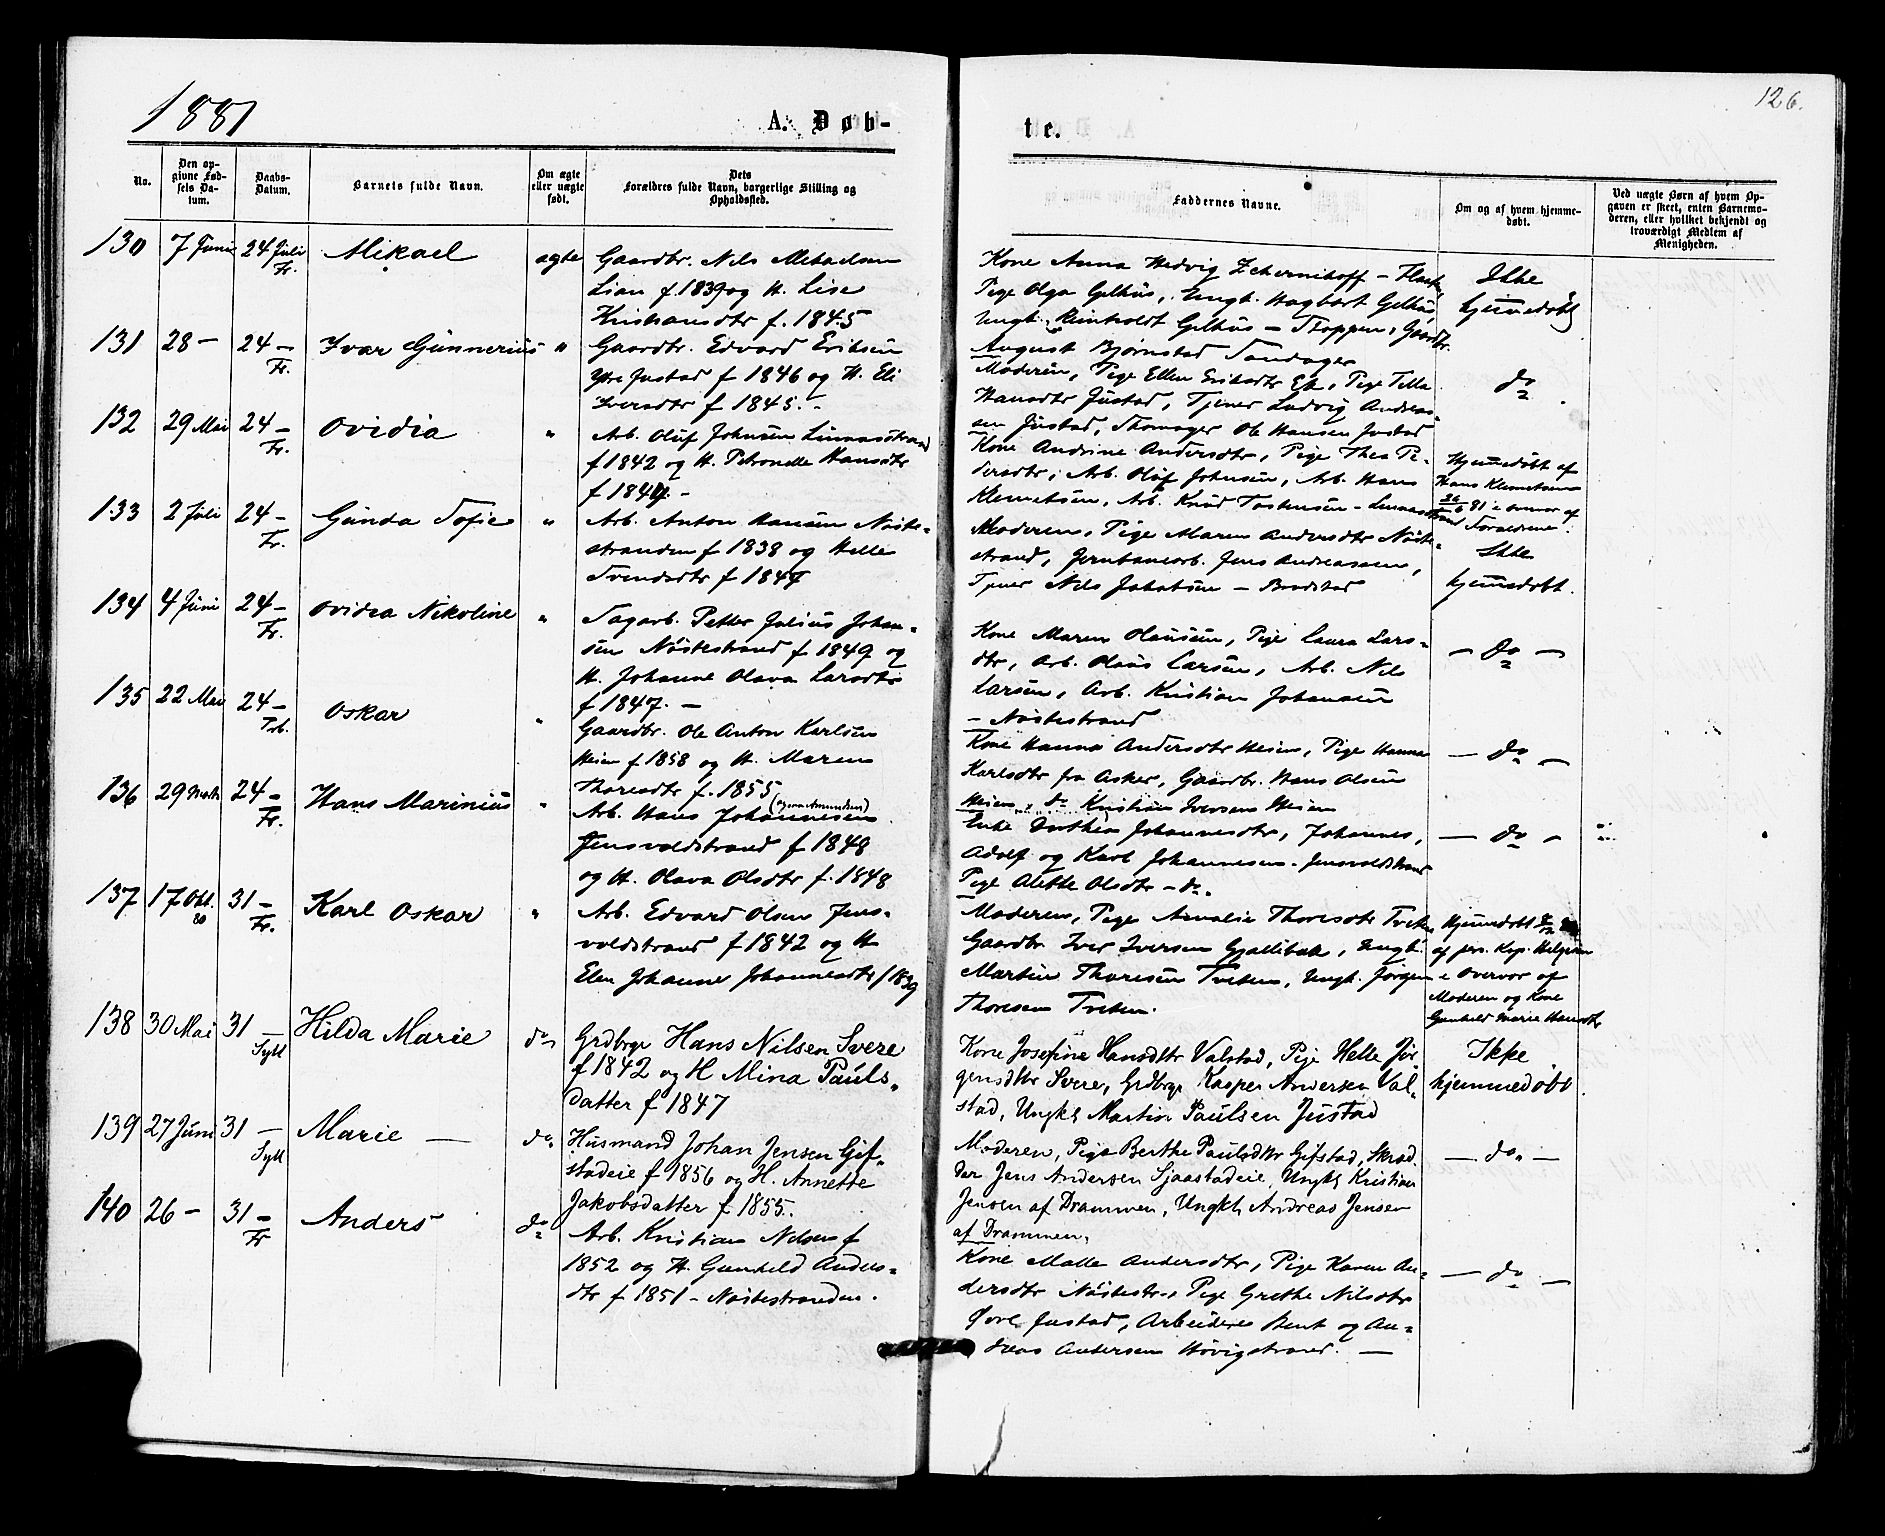 1881
A. Døb-
te.
126.
No.
Den op-
givne Fød-
sels Da-
tum.
Daabs-
Datum.
Barnets fulde Navn.
Om ægte
eller uægte
født.
Dets
Forældres fulde Navn, borgerlige Stilling og
Opholdssted.
Faddernes Navne.
Om og af hvem hjemme-
døbt.
Ved uægte Børn af hvem Op-
gaven er skeet, enten Barnemo-
deren, eller hvilket bekjendt og
troværdigt Medlem af
Menigheden.
130 7 Juni 24 Juli Fr. Mikael ægte
Gaardbr. Nils
Lian f. 1839 og H. Lise
Kristiansdtr f. 1845
Kone Anna Hedvig
Pige Olga Gelhus, Ungk. Hagbart Gelhus,
Ungk. Reinholdt Gelhus – Toppen, Gaardbr.
August Bjørnstad Sandager
Ikke
hjemmedøbt
131 28 – 24 – Fr. Ivar Gunnerius "
Gaardbr. Edvard Eriksen
Ytre Justad f 1846 og H. Eli
Iversdtr f 1845. –
Moderen, Pige Ellen Eriksdtr Ek, Pige
Hansdtr Justad, Tjener Ludvig Andreas-
sen Justad, Ole Hansen Justad
do
132 29 Mai 24 – Fr. Ovidia "
Arb. Oluf Johnsen Linnesstrand
f 1842 og H. Petronelle Hansdtr
f 1844. –
Kone Andrine Andersdtr, Pige Thea Pe-
dersdtr, Arb. Oluf Johnsen, Arb. Hans
Klemetsen, Arb. Knud Tostensen – Linnesstrand
Hjemmedøbt af
Hans Klemetsen
81 i overvær af
Forældrene.
133 2 Juli 24 – Fr. Gunda Sofie "
Arb. Anton Hansen Nøste-
stranden f 1838 og Helle
Svendsdtr f 1847
Moderen, Pige Maren Andersdtr Nøste-
strand, Jernbanearb. Jens Andreassen,
Tjener Nils Jakobsen – Brødstad
Ikke
hjemmedøbt.
134 4 Juni 24 – Fr. Ovidia Nikoline "
Sagarb. Petter Julius Johan-
sen Nøstestrand f 1849 og
H. Johanne Olava Larsdtr
f 1847. –
Kone Maren Hansen, Pige Laura Lars-
dtr, Arb. Olaus Larsen, Arb. Nils
Larsen, Arb. Kristian Johansen
– Nøstestrand
– do –
135 22 Mai 24 – Trb. Oskar "
Gaardbr. Ole Anton Karlsen
Heien f 1858 og H. Maren
Thoresdtr f. 1855
Kone Hanna Andersdtr Heien, Pige Hanna
Karlsdtr fra Asker, Gaardbr. Hans Olsen
Heien, do Kristian Iversen Heien
– do –
136 29 Marts 24 – Fr. Hans Marinius "
Arb. Hans Johannesen
Jensvoldstrand f 1848
og H. Olava Olsdtr f. 1848
Enke Dorthea Johannesdtr, Johannes,
Adolf og Karl Johannesen – Jensvoldstrand
Pige Alette Olsdtr – do.
– do –
137 17 Okt. 80 31 – Fr. Karl Oskar "
Arb. Edvard Olsen Jens-
voldstrand f 1842 og H
Elen Johanne Johannesdtr f 1839
Moderen, Pige Amalie Thoresdtr Tveten
Gaardbr Iver Iversen Gjellebæk, Ungk.
Martin Thoresen Tveten, Ungk. Jørgen
Thoresen Tveten.
Hjemmedøbt
af pers. Kap.
i Overvær af
Moderen og Kone
Gunhild Marie Hansdtr
138 30 Mai 31 – Syll Hilda Marie do
Grdbrgr Hans Nilsen Svere
f 1842 og H Mina Pauls-
datter f 1847
Kone Josefine Hansdttr Valstad, Pige Helle Jør
gensdttr Svere, Grdbrgr Kasper Andersen Val-
stad, Ungkl Martin Paulsen Justad
Ikke
hjemmedøbt.
139 27 Juni 31 – Syll Marie – do.
Husmand Johan Jensen Gif-
stadeie f 1856 og H. Annette
Jakobsdatter f 1855.
Moderen, Pige Berthe Paulsdttr Gifstad, Skræd
der Jens Andersen Sjaastadeie, Ungkl Kristian
Jensen af Drammen, Ungkl Andreas Jensen
af Drammen.
– do. –
140 26 – 31 – Fr Anders do
Arb. Kristian Nilsen f
1852 og H. Gunhild Anders-
dtr f 1851 – Nøstestranden.
Kone Malla Andersdtr, Pige Karen An-
dersdtr Nøstestr., Pige Grethe Nilsdtr
Øvre Justad, Arbeidere Bent og An-
dreas Andersen Høvigstrand. –
– do –